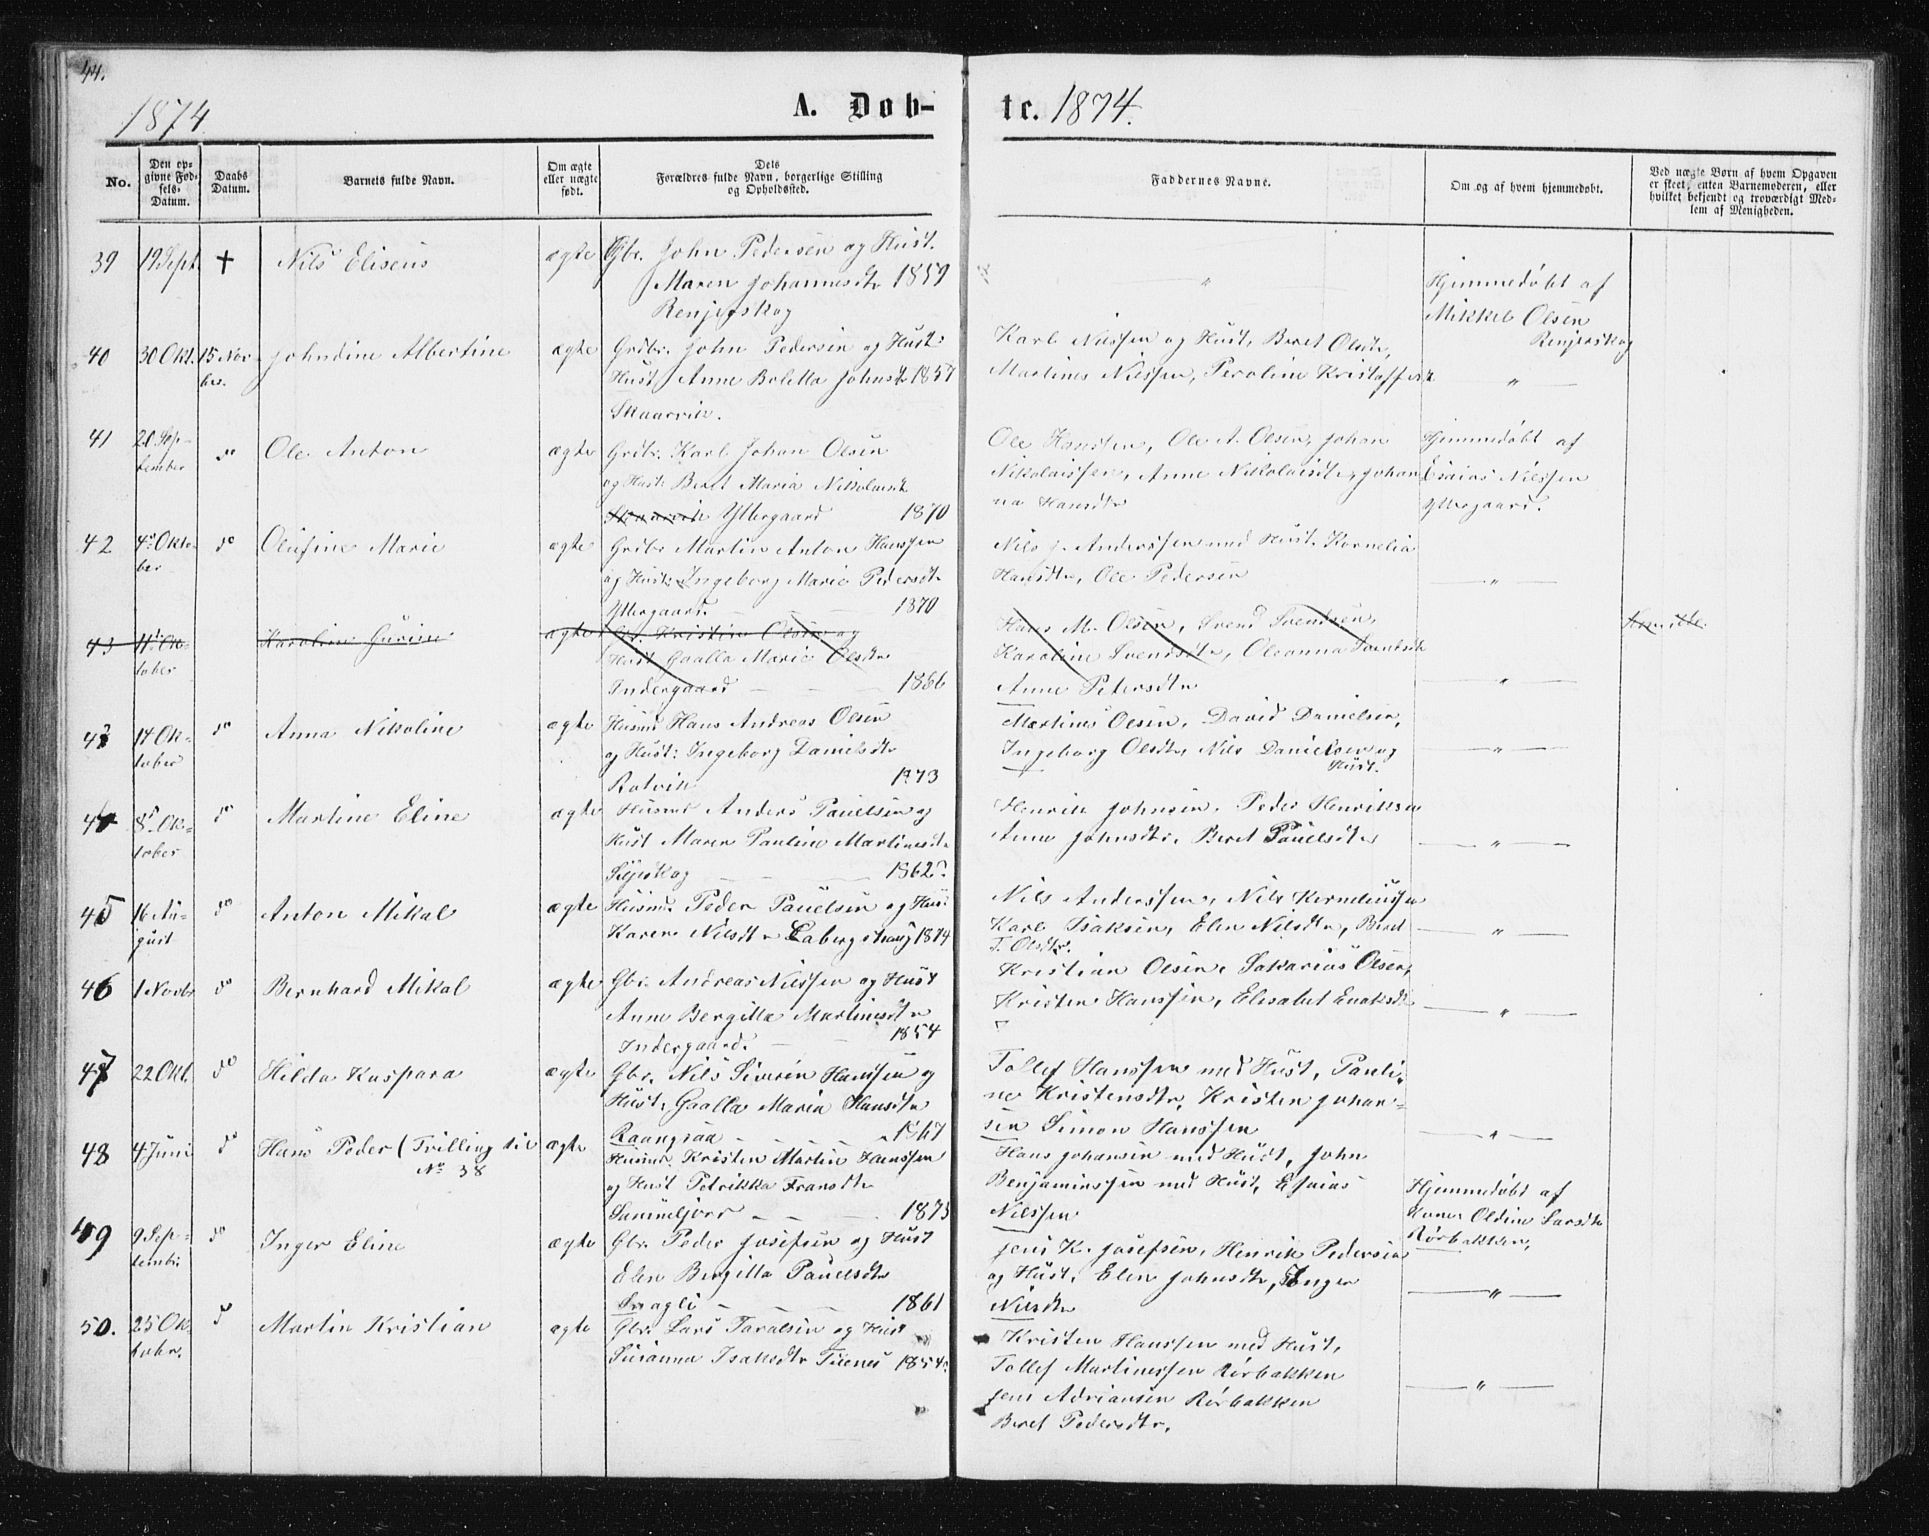 44.
1874
A. Døb-
te. 1874.
No.
Den op-
givne Fød-
sels-
Datum.
Daabs
Datum.
Barnets fulde Navn.
Om ægte
eller uægte
født.
Dets
Forældres fulde Navn, borgerlige Stilling
og Opholdssted.
Faddernes Navne.
Om og af hvem hjemmedøbt.
Ved uægte Børn af hvem Opgaven
er skeet, enten Barnemoderen, eller
hvilket bekjendt og troværdigt Med-
lem af Menigheden.
39 19 Sept. + Nils Eliseus ægte Gbr. John Pedersen og Hust.
Maren Johannesdtr 1859
Renjerskog
"
Hjemmedøbt af
Mikkel Olsen
Renjerskog
40 30 Okt. 15 Nov- Johndine Albertine ægte Grdbr. John Pedersen og Hust:
ber. Hust Anne Boletta Johnsdtr 1857
Skaarvik.
Karl Nilssen og Hust, Beret Olsdtr,
Martines Nilssen, Peroline Kristoffersdtr "
41 20 Sep-
tember do Ole Anton ægte Grdbr. Karl Johan Olsen
og Hust: Beret Maria Nikolaisdtr
Yttergaard 1870
Ole Hansen, Ole A. Olsen, Johan
Nikolaissen, Anne Nikolaisdtr, Johan
na Hansdtr
Hjemmedøbt af
Esaias Nilssen
Yttergaard.
42 4de Okto-
ber do Olufine Marie ægte Grdbr Martin Anton Hanssen
og Hust: Ingeborg Marie Pedersdtr
Yttergaard. 1870
Nils J. Anderssen med Hust. Kornelia
Hansdtr, Ole Pedersen "
43 11te Ok-
tober Karoline Gurine ægte Gbr. Kristen Olsen og
Hust Gaalla Marie Olsdtr
Indergaard 1866
Hans M. Olsen, Svend Svendsen,
Karoline Svendsdtr, Oleanna Svendsdtr
Anne Petersdtr "
43 14 Ok-
tober do Anna Nikoline ægte Husmd Hans Andreas Olsen
og Hust: Ingeborg Danielsdtr
Rotvik 1873
Martines Olsen, David Danielsen,
Ingeborg Olsdtr, Nils Danielsen og
Hust. "
44 8de Ok-
tober do Martine Eline ægte Husmd Anders Pauelsen og
Hust Maren Pauline Martinesdtr
1862
Henrik Johnsen, Peder Henriksen
Anne Johnsdtr, Beret Pauelsdtr "
45 16 Au-
gust do Anton Mikal ægte Husmd. Peder Pauelsen og Hust
Karen Nilsdtr Labergshaug 1874
Nils Anderssen, Nils Korneliussen
Karl Isaksen, Elen Nilsdtr, Beret
T. Olsdtr. "
46 1 Novbr do Bernhard Mikal ægte Gbr. Andreas Nilssen og Hust
Anne Bergitta Martinesdtr
Indergaard. 1854
Kristian Olsen, Sakarias Olsen,
Kristen Hanssen, Elisabet Enoksdtr "
47 22 Okt. do Hilda Kaspara ægte Gbr. Nils Siverin Hanssen og
Hust, Gaalla Maria Hansdtr
Raangsaa 1867
Tollef Hanssen med Hust, Pauli-
ne Kristensdtr, Kristen Johan-
sen Simon Hanssen "
48 4 Juni do Hans Peder (Trilling til
No 38 ægte Husmd. Kristen Martin Hanssen
og Hust Petrikka Fransdtr
1873
Hans Johansen med Hust, John
Benjaminssen med Hust, Esaias
Nilssen
Hjemmedøbt af
Oldine Larsdtr
Rørbakken.
49 9 Sep-
tembr. do Inger Eline ægte Gbr. Peder Josefsen og Hust
Elen Bergitta Pauelsdtr
1861
Jens K. Josefsen, Henrik Pedersen
og Hust, Elen Johnsdtr, Inger
Nilsdtr "
50. 25 Ok-
tobr. do Martin Kristian ægte Gbr. Lars Taralsen og Hust
Susanna Isaksdtr 1854.
Kristen Hanssen med Hust,
Tollef Martinessen Rørbakken
Jens Adriansen Rørbakken
Beret Pedersdtr. "